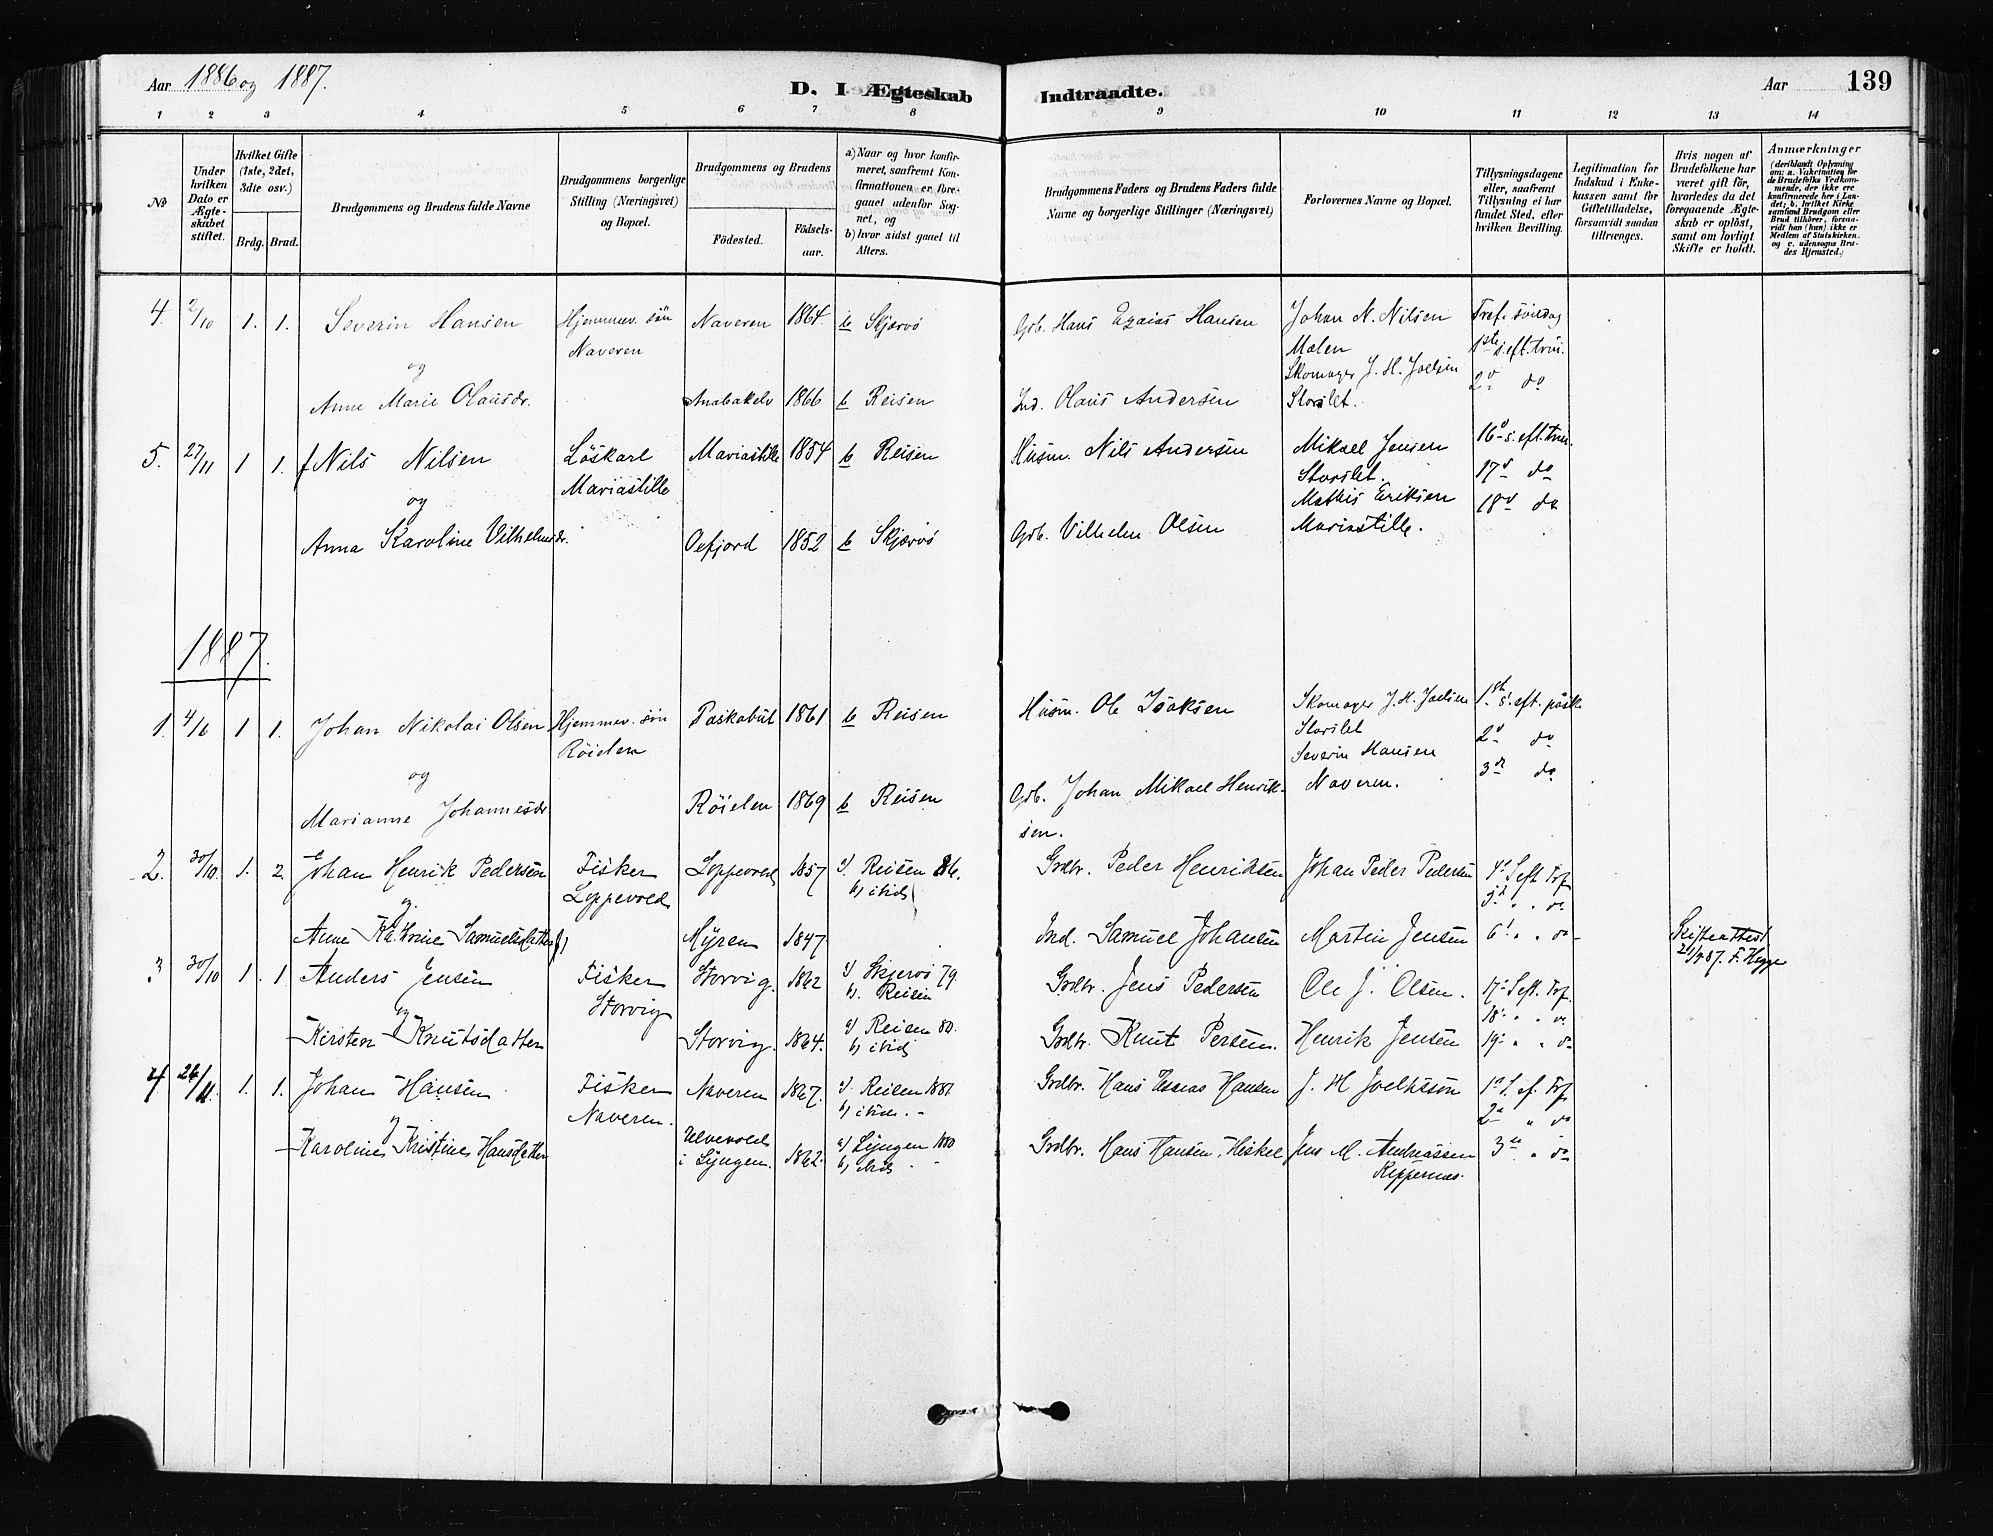 Aar 1886 og 1887.
D. I Ægteskab Indtraadte.
Aar 139
1 2 3 4 5 6 7 8 9 10 11 12 13 14
No
Under hvilken Dato er Ægteskabet stiftet.
Hvilket Gifte (1ste, 2det, 3die osv.)
Brdg. Brud.
Brudgommens og Brudens fulde Navne
Brudgommens borgerlige Stilling (Næringsvei) og Bopæl.
Brudgommens og Brudens
Fødested.
Fødselsaar.
a) Naar og hvor konfirmeret, saafremt Konfirmationen er foregaaet udenfor Sognet, og
b) hvor sidst gaaet til Alters.
Brudgommens Faders og Brudens Faders fulde Navne og borgerlige Stillinger (Næringsvei)
Forlovernes Navne og Bopæl.
Tillysningsdagene eller, saafremt Tillysning ei har fundet Sted, efter hvilken Bevilling.
Legitimation for Indskud i Enkekassen samt for Giftetilladelse, forsaavidt saadan tiltrænges.
Hvis nogen af Brudefolkene har været gift før, hvorledes da det foregaaende Ægteskab er opløst, samt om lovligt Skifte er holdt.
Anmærkninger
(deriblandt Oplysning om: a. Vaccination for de Brudefolks Vedkommende, der ikke ere konfirmerede her i Landet; b. hvilket Kirkesamfund Brudgom eller Brud tilhører, forsaavidt han (hun) ikke er Medlem af Statskirken, og c. udensogns Brudes Hjemsted.)
4. 2/10 1. 1. Severin Hansen Hjemmev. søn Naveren 1864. b Skjervø Grb. Hans Ezaias Hansen Johan N. Nilsen Tref. søndag
Naveren Molen 1ste s. eft. trin.
og Skomager J. H. Joelsen
Anne Marie Olausdr. 1866 b Reisen Ind. Olaus Andersen Storslet. 2d do
5. 27/11 1 1. Nils Nilsen Løskarl Mariastille 1854 b Reisen Husm. Nils Andersen Mikael Jensen 16d s. eft. trin.
Mariastille Storslet. 17d do
og Mathis Eriksen 18d do
Anna Karoline Vilhelmsdr. Oxfjord 1852 b Skjærvø Grb. Vilhelm Olsen Mariastille.
1887.
1. 4/6 1 1. Johan Nikolai Olsen Hjemmev. søn 1861 b Reisen Husm. Ole Isaksen Skomager J. H. Joelsen 1ste s. eft. påske
Røielen Storslet 2d do
og Severin Hansen 3d do
Marianne Johannesdr Røielen 1869 b Reisen Grb. Johan Mikael Henrik- Naveren.
sen.
2. 30/10 1. 2. Johan Henrik Pedersen Fisker Loppevold 1857 a) Reisen Grdbr. Peder Henriksen Johan Peder Pedersen 4d S eft Trf
og Loppevold b) ibid 5d " " do
Anne Kathrine Samuelsdatter Myren 1847 Ind. Samuel Johansen Martin Jensen 6d " " do Skifteattest
F. Hegge
3 30/10 1. 1. Anders Jensen Fisker Storvig. 1862 a) Skjervø 79. Grdbr. Jens Pedersen Ole J. Olsen. 17d S eft. Trf.
og Storvig b) Reisen 18d " " do
Kirsten Knutsdatter Storvig. 1864. a) Reisen 80. Grdbr. Knut Persen. Henrik Jensen 19d " " do
b) ibid
4 26/11. 1. 1. Johan Hansen Fisker Naveren 1867. a) Reisen 1881 Grdbr. Hans Esaias Hansen 1d S. ef. Trf
og Naveren. b) ibid. 2d " do
Karoline Kristine Hansdatter i Lyngen. 1862. a) Lyngen 1880 Grdbr. Hans Hansen, Heskel Jens M. Andreassen 3d " do
b) ibid Kippernæs.